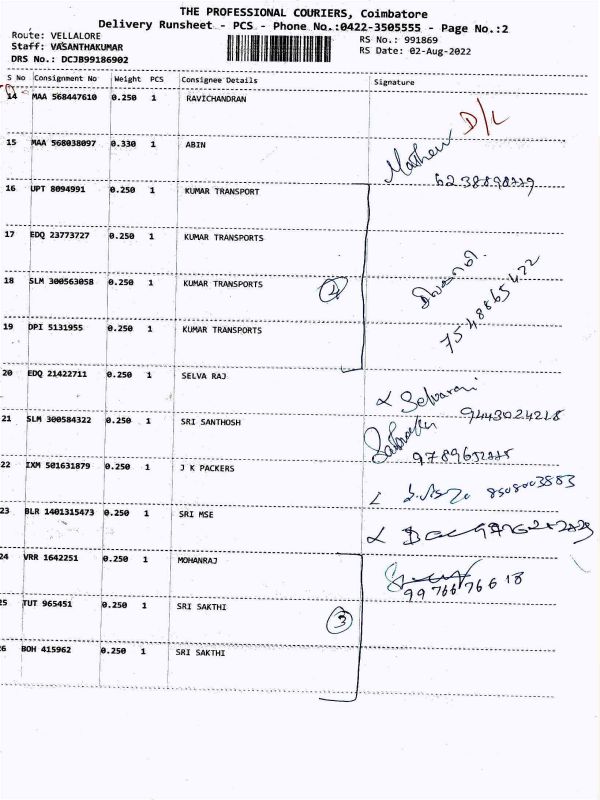 THE PROFESSIONAL COURIERS, Coimbatore
Delivery Runsheet - PCS - Phone No.:0422-3505555 - Page No.:2
Route: VELLALORE RS No.: 991869
Staff: VASANTHAKUMAR RS Date: 02-Aug-2022
DRS No.: DCJB99186902
S No Consignment No Weight PCS Consignee Details Signature
14 MAA 568447610 0.250 1 RAVICHANDRAN D/L
15 MAA 568038097 0.330 1 ABIN Mathew
16 UPT 8094991 0.250 1 KUMAR TRANSPORT
17 EDQ 23773727 0.250 1 KUMAR TRANSPORTS
18 SLM 300563058 0.250 1 KUMAR TRANSPORTS 4 7548865422
19 DPI 5131955 0.250 1 KUMAR TRANSPORTS
20 EDQ 21422711 0.250 1 SELVA RAJ Selvarani
9443024218
21 SLM 300584322 0.250 1 SRI SANTHOSH
22 IXM 501631879 0.250 1 J K PACKERS 8508003883
23 BLR 1401315473 0.250 1 SRI MSE
24 VRR 1642251 0.250 1 MOHANRAJ
9976676618
25 TUT 965451 0.250 1 SRI SAKTHI 3
26 BOH 415962 0.250 1 SRI SAKTHI